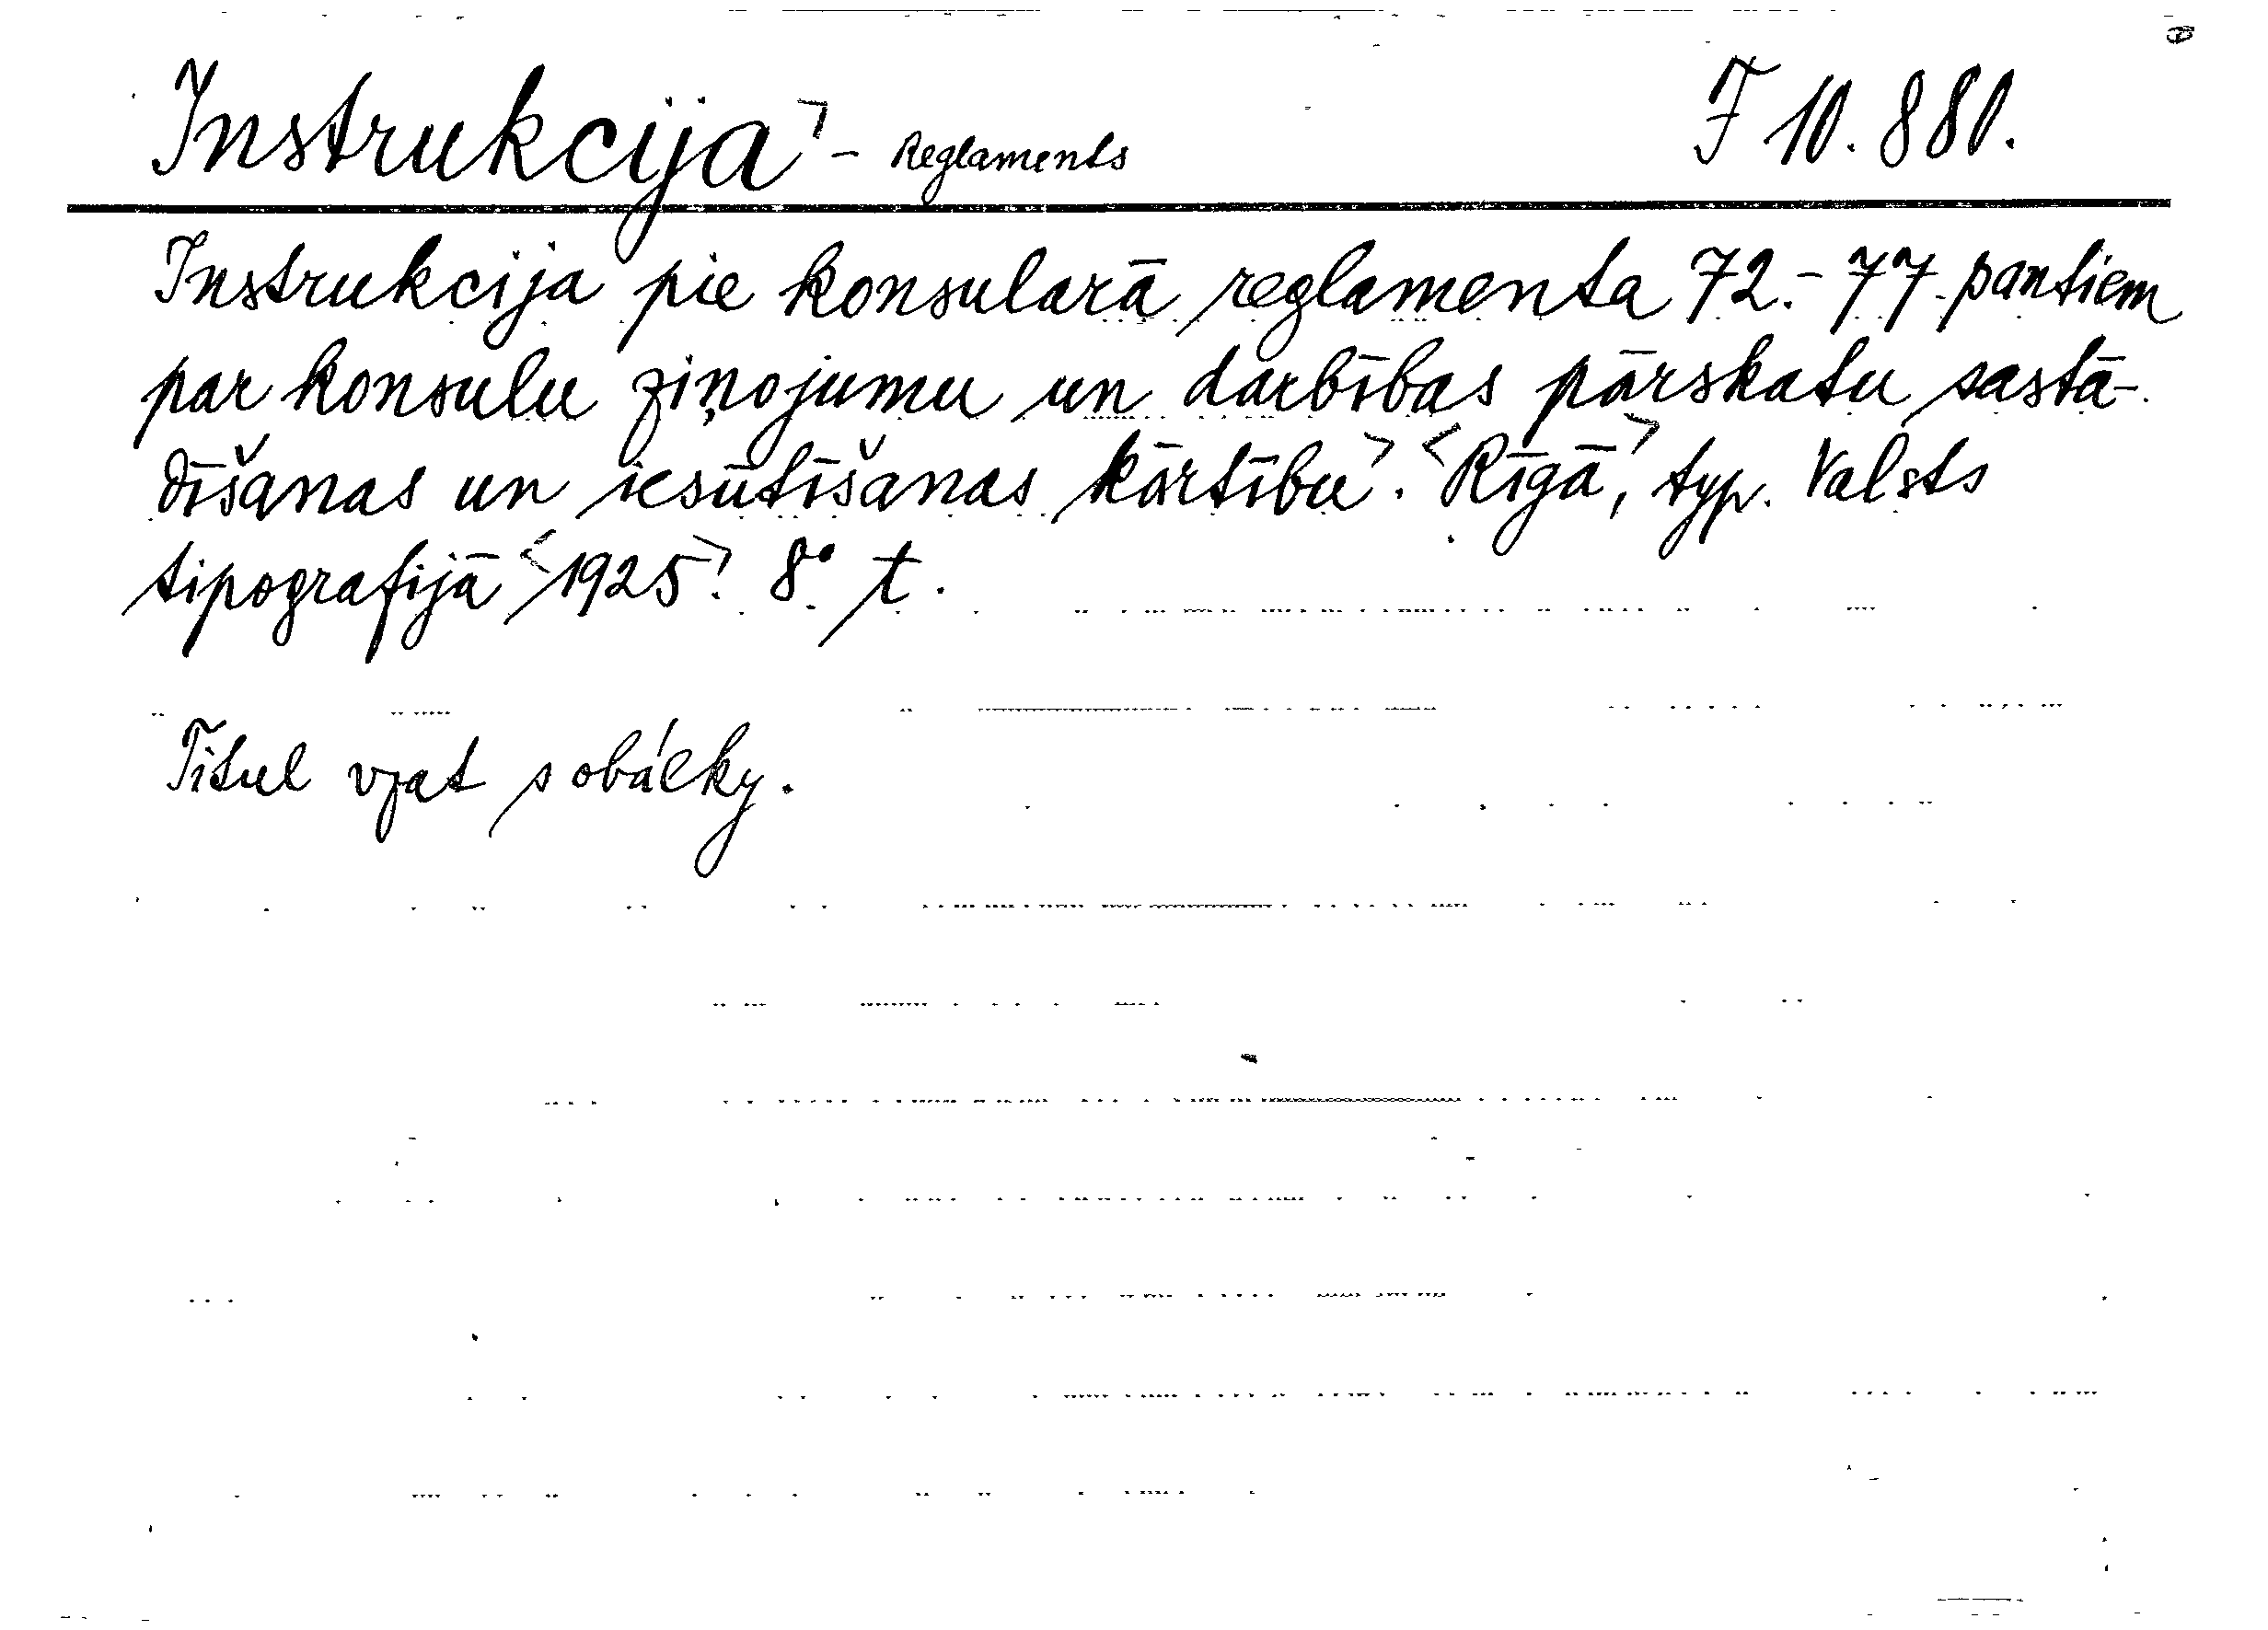 Instrukcija> - Reglaments F 10.880.
Instrukcija pie konsularā reglamenta 72.- 77. pantiem
par konsulu ziņojumu un darbības pārskatu sastā-
dīšanas un iesūtīšanas kārtību>. <Rīgā>, typ. Valsts
tipografijā <1925>. 8° t.
Titul vzat s obálky.